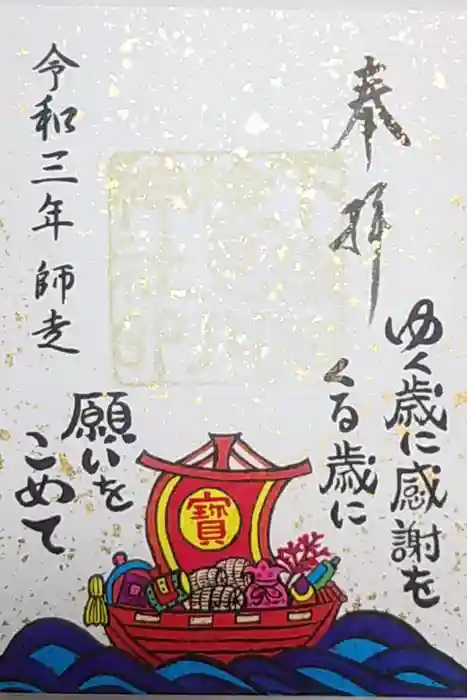 奉拝
ゆく歳に感謝を
くる歳に
願いを
こめて
令和三年 師走
寶